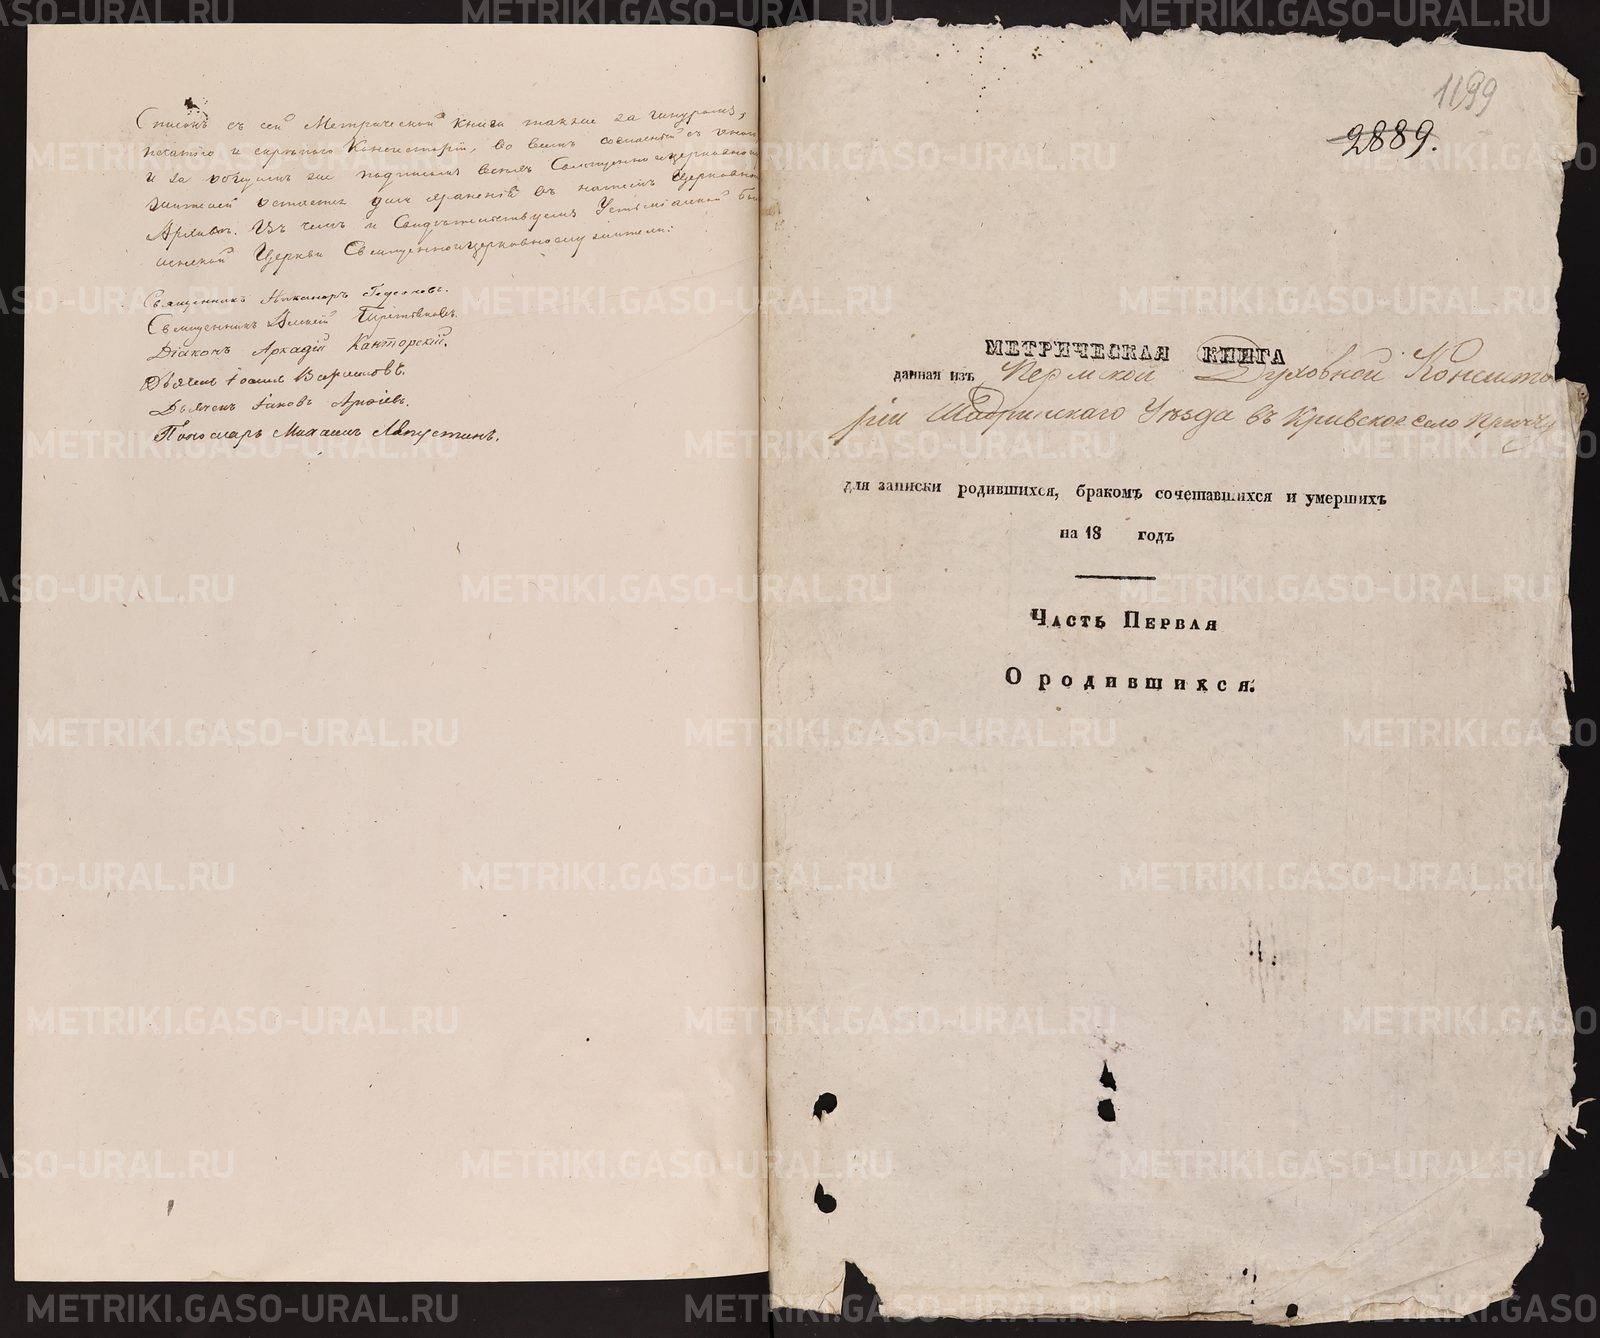 Списокъ съ сей Метрической книги также за шнуромъ,
печатью и скрѣпою Консисторіи, во всемъ согласный съ
и за общимъ же подписомъ всѣхъ Священно и церковно
жителей остается для храненія въ нашемъ Церковно
Архивѣ. Въ чемъ и Свидѣтельствуемъ Усть
Церкви Священноицерковнослужители:
Священникъ Никаноръ
Священникъ Алексій Третьяковъ.
Діаконъ Аркадій Канторскій.
Дьячекъ Іоаннъ
Дьячекъ Іаковъ
Пономарь Михаилъ
1199
2889.
МЕТРИЧЕСКАЯ КНИГА
данная изъ Пермской Духовной Консисто
ріи Шадринскаго Уѣзда въ Кривское село Причту
для записки родившихся, бракомъ сочетавшихся и умершихъ
на 18 годъ
Часть Первая
О родившихся.
METRIKI.GASO-URAL.RU